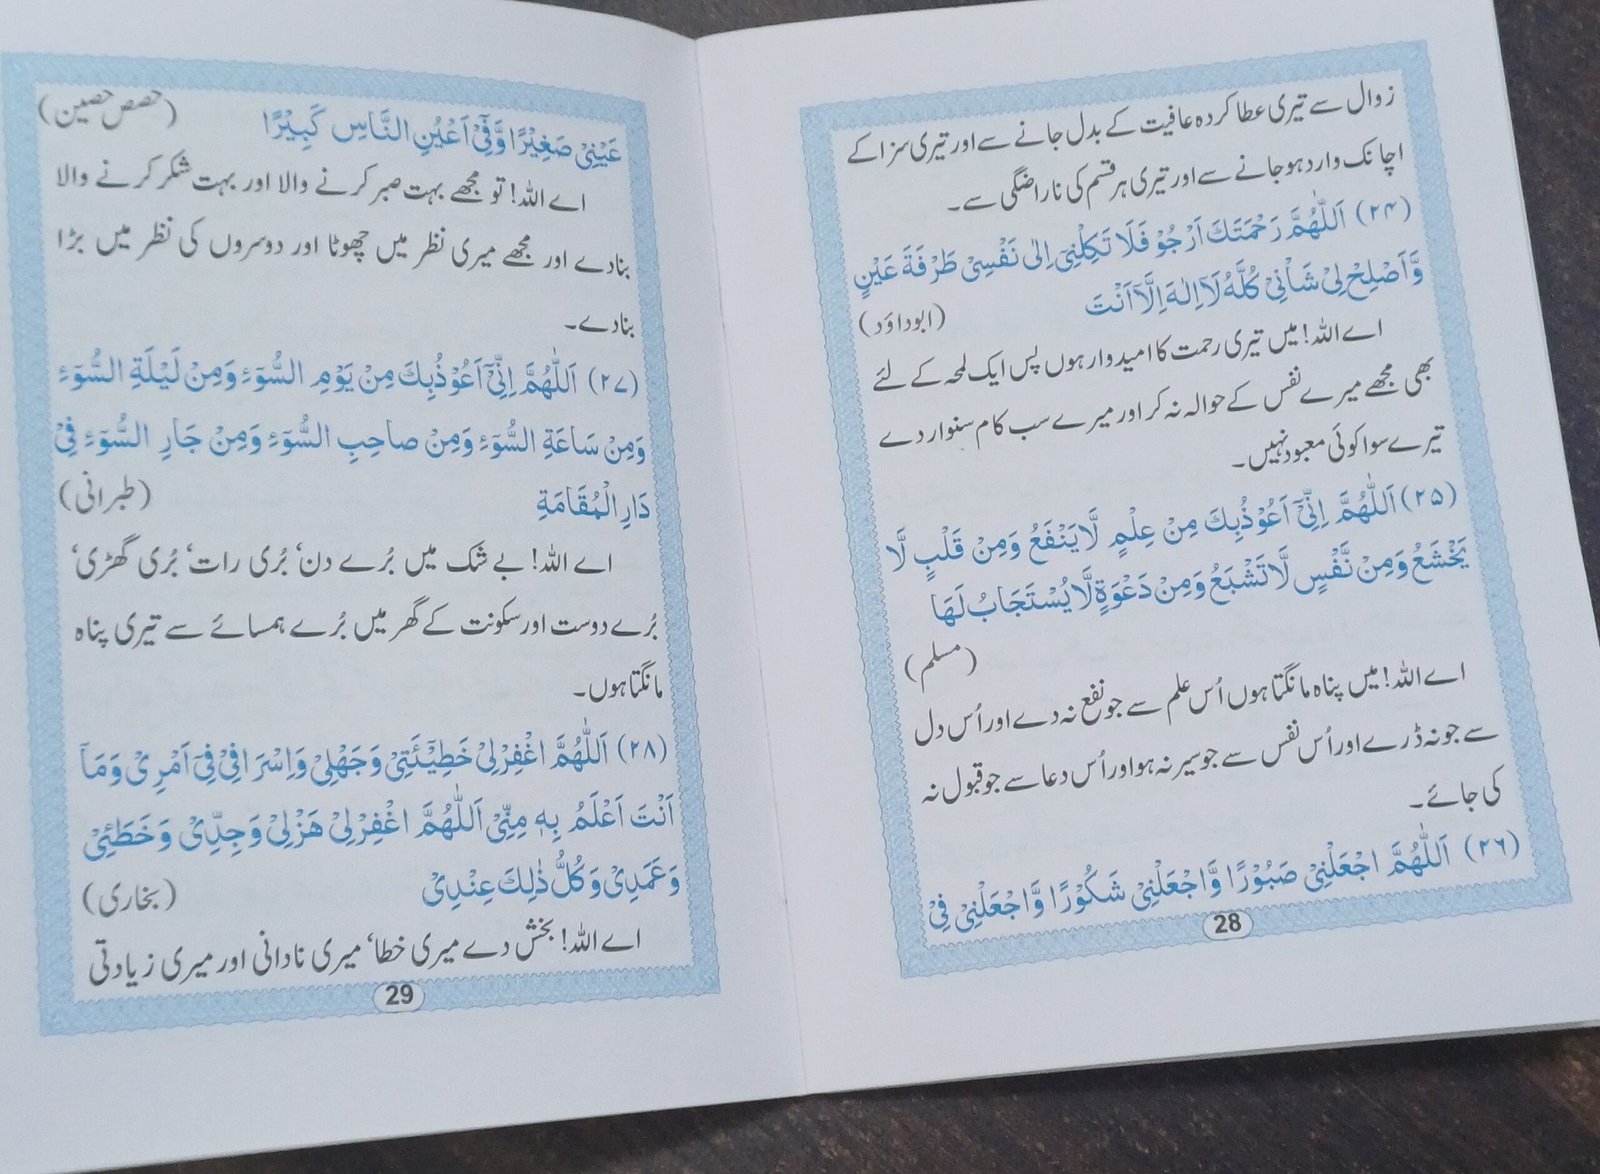 زوال سے تیری عطا کردہ عافیت کے بدل جانے سے اور تیری سزا کے
اچانک وارد ہو جانے سے اور تیری ہر قسم کی ناراضگی سے۔
(۲۴) اَللّٰهُمَّ رَحْمَتَكَ اَرْجُوْ فَلَا تَكِلْنِیْۤ اِلٰی نَفْسِیْ طَرْفَةَ عَیْنٍ
وَّاَصْلِحْ لِیْ شَاْنِیْ كُلَّهٗ لَاۤ اِلٰهَ اِلَّاۤ اَنْتَ
(ابوداؤد)
اے اللہ! میں تیری رحمت کا امیدوار ہوں پس ایک لمحہ کے لئے
بھی مجھے میرے نفس کے حوالہ نہ کر اور میرے سب کام سنوار دے
تیرے سوا کوئی معبود نہیں۔
(۲۵) اَللّٰهُمَّ اِنِّیْۤ اَعُوْذُبِكَ مِنْ عِلْمٍ لَّا یَنْفَعُ وَمِنْ قَلْبٍ لَّا
یَخْشَعُ وَمِنْ نَّفْسٍ لَّا تَشْبَعُ وَمِنْ دَعْوَةٍ لَّا یُسْتَجَابُ لَهَا
(مسلم)
اے اللہ! میں پناہ مانگتا ہوں اُس علم سے جو نفع نہ دے اور اُس دل
سے جو نہ ڈرے اور اُس نفس سے جو سیر نہ ہو اور اُس دعا سے جو قبول نہ
کی جائے۔
(۲۶) اَللّٰهُمَّ اجْعَلْنِیْ صَبُوْرًا وَّاجْعَلْنِیْ شَكُوْرًا وَّاجْعَلْنِیْ فِیْ
28
عَیْنِیْ صَغِیْرًا وَّفِیْۤ اَعْیُنِ النَّاسِ كَبِیْرًا (حصص حصین)
اے اللہ! تو مجھے بہت صبر کرنے والا اور بہت شکر کرنے والا
بنادے اور مجھے میری نظر میں چھوٹا اور دوسروں کی نظر میں بڑا
بنادے۔
(۲۷) اَللّٰهُمَّ اِنِّیْۤ اَعُوْذُبِكَ مِنْ یَوْمِ السُّوْٓءِ وَمِنْ لَیْلَةِ السُّوْٓءِ
وَمِنْ سَاعَةِ السُّوْٓءِ وَمِنْ صاحِبِ السُّوْٓءِ وَمِنْ جَارِ السُّوْٓءِ فِیْ
دَارِ الْمُقَامَةِ (طبرانی)
اے اللہ! بے شک میں بُرے دن‘ بُری رات‘ بُری گھڑی‘
بُرے دوست اور سکونت کے گھر میں بُرے ہمسائے سے تیری پناہ
مانگتا ہوں۔
(۲۸) اَللّٰهُمَّ اغْفِرْلِیْ خَطِیْٓئَتِیْ وَجَهْلِیْ وَاِسْرَافِیْ فِیْۤ اَمْرِیْ وَمَاۤ
اَنْتَ اَعْلَمُ بِهٖ مِنِّیْ اَللّٰهُمَّ اغْفِرْلِیْ هَزْلِیْ وَجِدِّیْ وَخَطَئِیْ
وَعَمَدِیْ وَكُلُّ ذٰلِكَ عِنْدِیْ (بخاری)
اے اللہ! بخش دے میری خطا‘ میری نادانی اور میری زیادتی
29